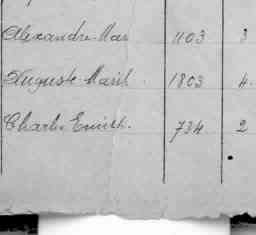 Alexandre Mar 1103 3
Auguste Maril 1803 4.
Charlie Emish. 734 2